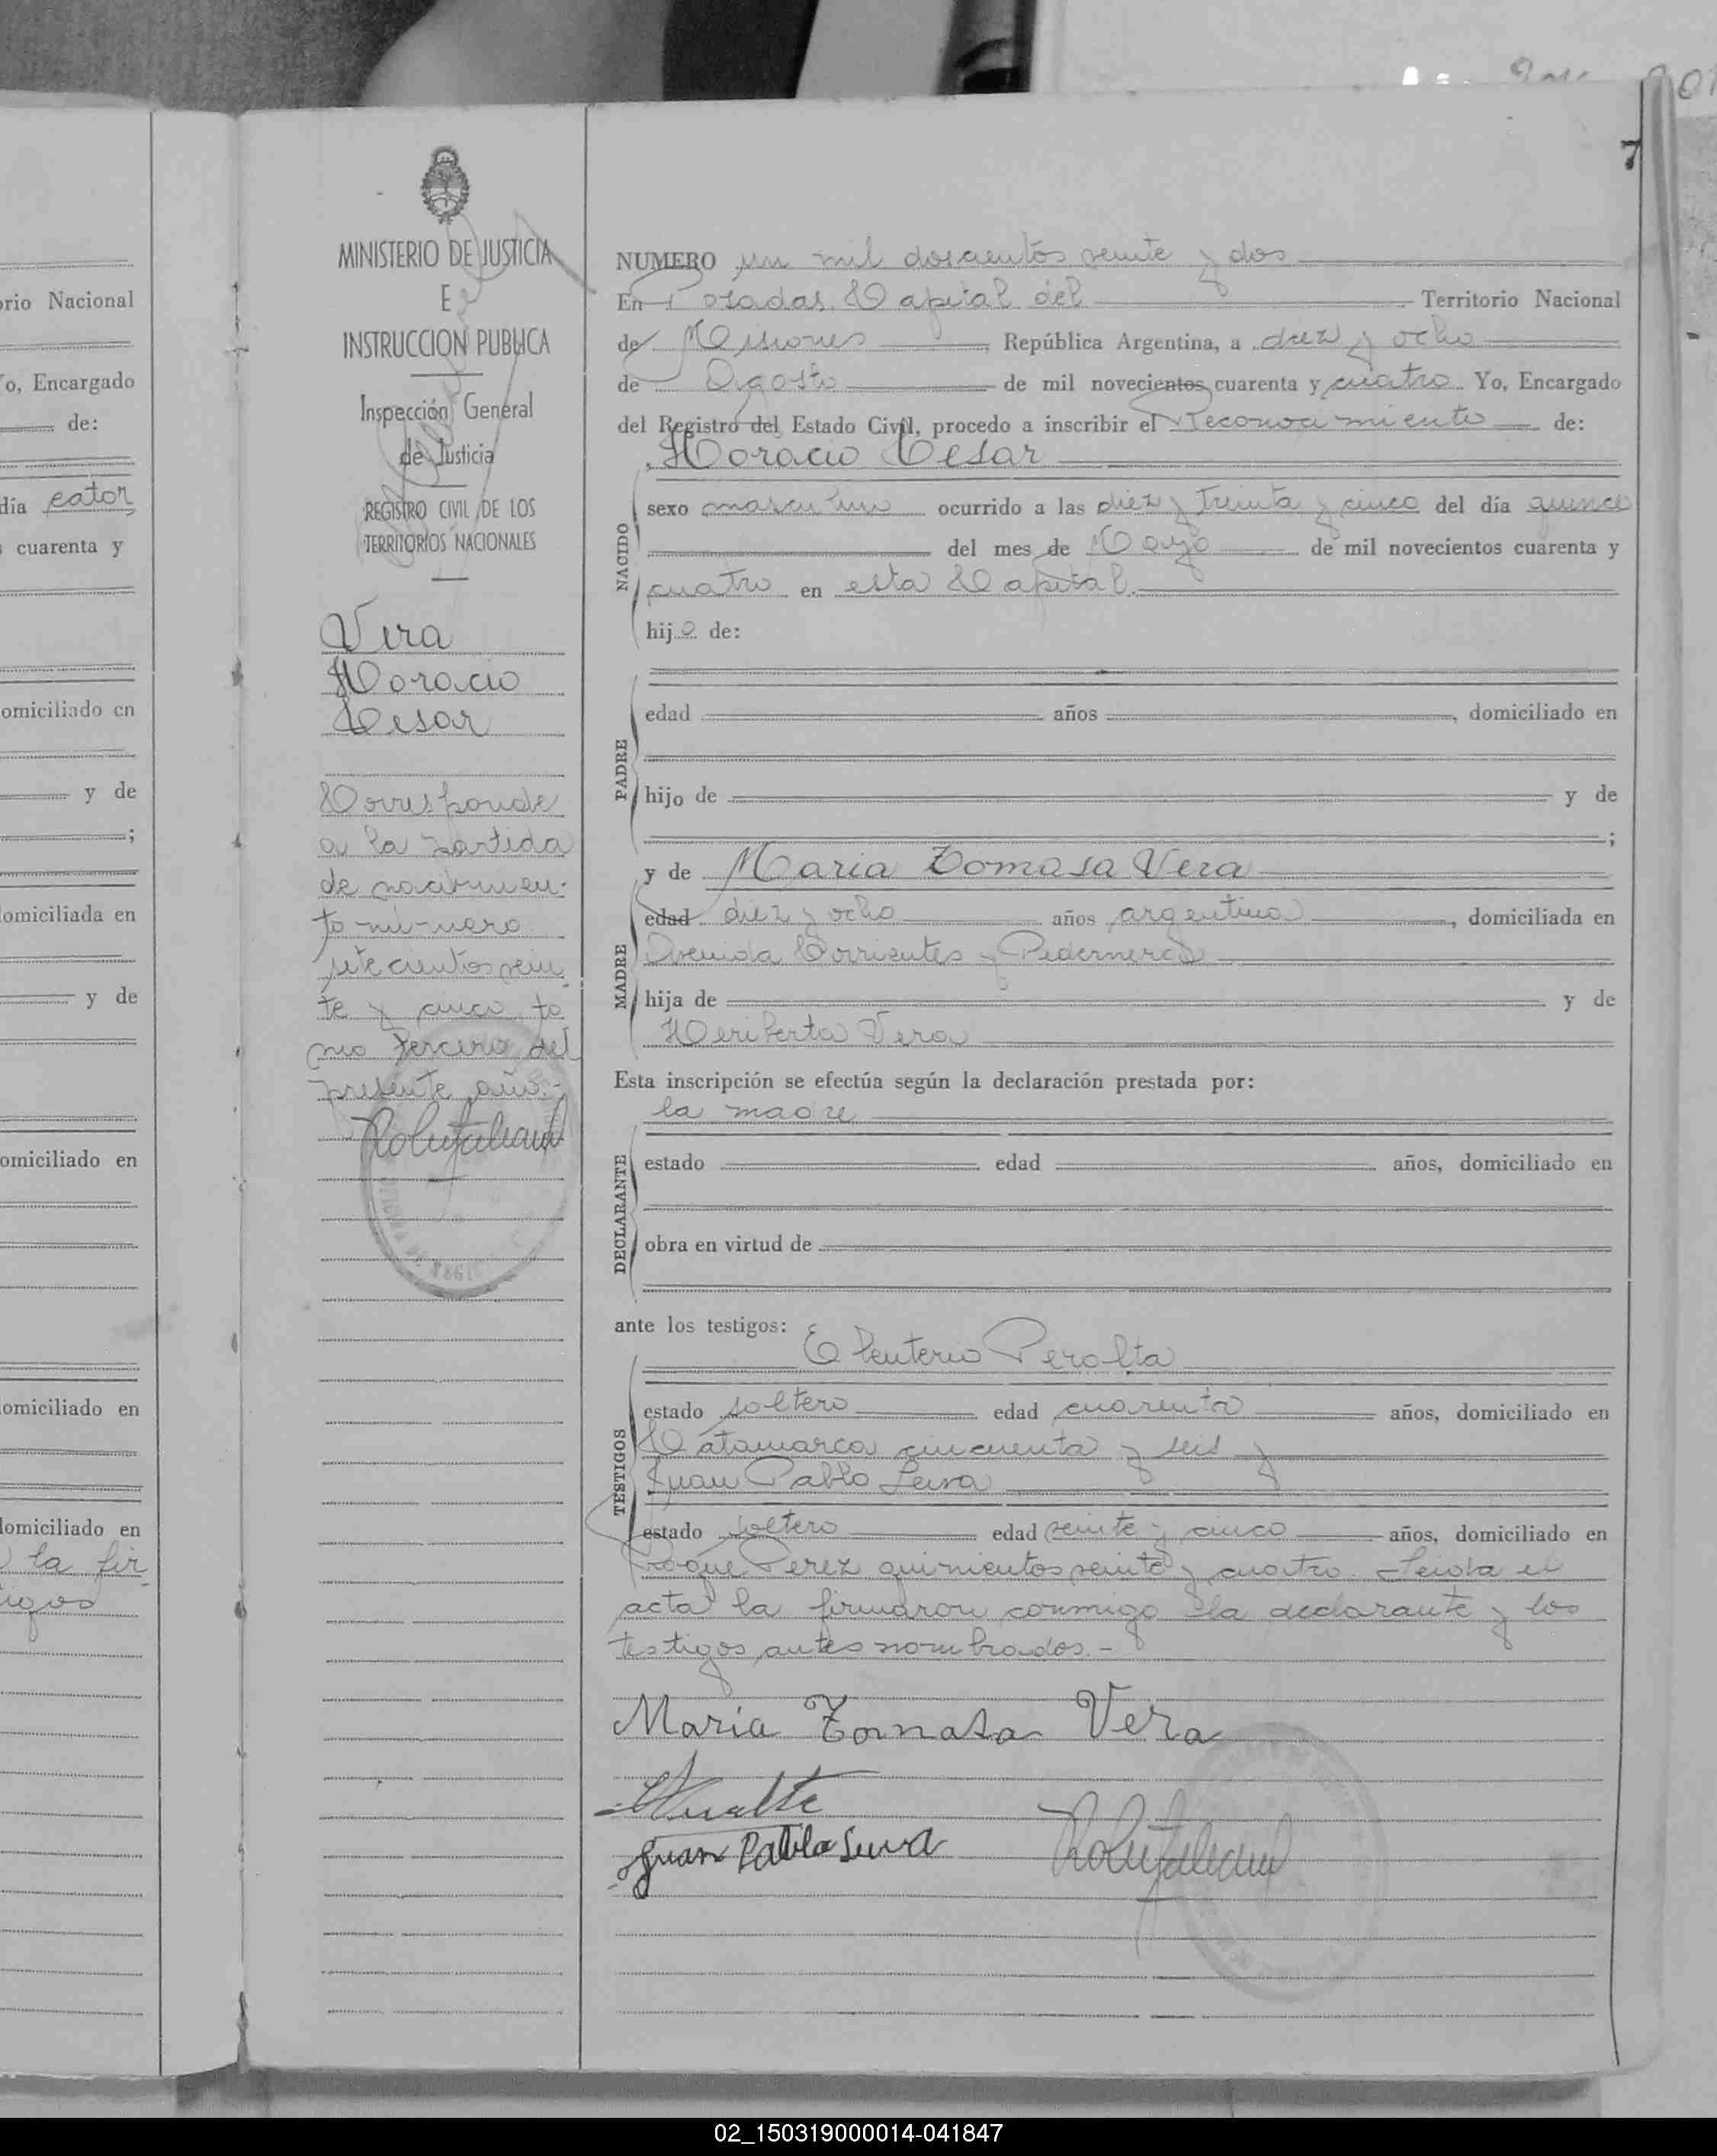 7
orio Nacional
Yo, Encargado
de:
día cator
s cuarenta y
omiciliado en
y de
;
domiciliada en
y de
omiciliado en
omiciliado en
domiciliado en
la fir
tigos
MINISTERIO DE JUSTICIA
E
INSTRUCCION PUBLICA
Inspección General
de Justicia
REGISTRO CIVIL DE LOS
TERRITORIOS NACIONALES
Vera
Horacio
Cesar
Corresponde
a la partida
de nacimien-
to número
setecientos vein
te y cinco, to
mo tercero del
presente año.-
NUMERO un mil doscientos veinte y dos
En Posadas, Capital del Territorio Nacional
de Misiones República Argentina, a diez y ocho
de Agosto de mil novecientos cuarenta y cuatro Yo, Encargado
del Registro del Estado Civil, procedo a inscribir el Reconocimiento de:
Horacio Cesar
NACIDO
sexo masculino ocurrido a las diez y treinta y cinco del día quince
del mes de Mayo de mil novecientos cuarenta y
cuatro en esta Capital.
hijo de:
PADRE
edad años , domiciliado en
hijo de y de
;
y de Maria Tomasa Vera
MADRE
edad diez y ocho años argentina , domiciliada en
Avenida Corrientes y Pedernera
hija de y de
Heriberta Vera
Esta inscripción se efectúa según la declaración prestada por:
la madre
DECLARANTE
estado edad años, domiciliado en
obra en virtud de
ante los testigos:
Eleuterio Peralta
TESTIGOS
estado soltero edad cuarenta años, domiciliado en
Catamarca cincuenta y seis y
Juan Pablo Leiva
estado soltero edad veinte y cinco años, domiciliado en
Roque Perez quinientos veinte y cuatro. Leida el
acta la firmaron conmigo la declarante y los
testigos antes nombrados.-
María Tomasa Vera
Juan Pablo Leiva
02_150319000014-041847